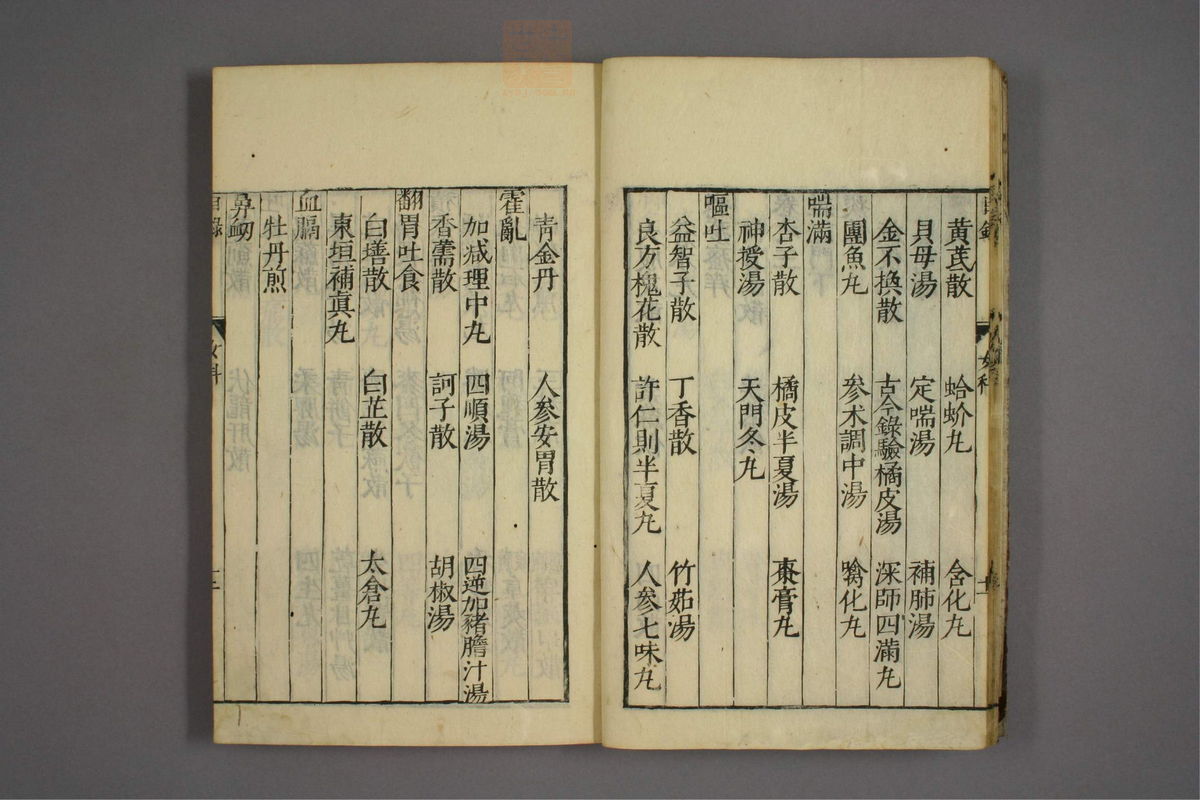 黃茋散 蛤蚧丸 含化丸
貝母湯 定喘湯 補肺湯
金不換散 古今錄驗橘皮湯 深師四滿丸
團魚丸 參术調中湯 噙化丸
喘滿
杏子散 橘皮半夏湯 棗膏丸
神授湯 天門冬丸
嘔吐
益智子散 丁香散 竹茹湯
良方槐花散 許仁則半夏丸 人參七味丸
青金丹 人參安胃散
霍亂
加減理中丸 四順湯 四逆加豬膽汁湯
香薷散 訶子散 胡椒湯
翻胃吐食
白墡散 白芷散 太倉丸
東垣補真丸
血膈
牡丹煎
鼻衂
目錄 女科